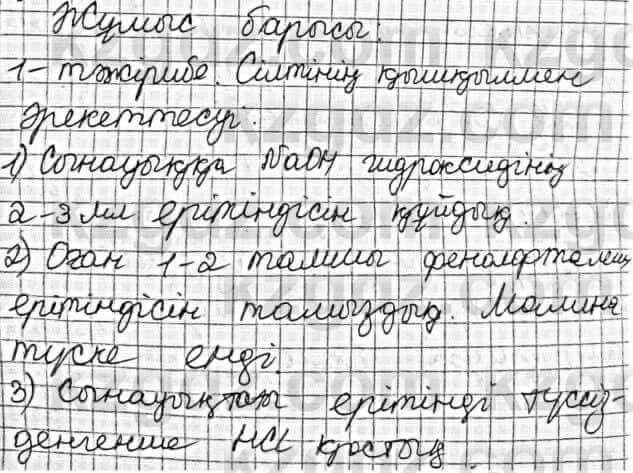 Жұмыс барысы:
1-тәжірибе. Сілтінің қышқылмен
әрекеттесуі.
1) Сынауыққа NaOH гидроксидінің
2-3 мл ерітіндісін құйдық.
2) Оған 1-2 тамшы фенолфталеин
ерітіндісін тамыздық. Малина
түске енді.
3) Сынауықтағы ерітінді түссіз-
денгенше HCl қостық